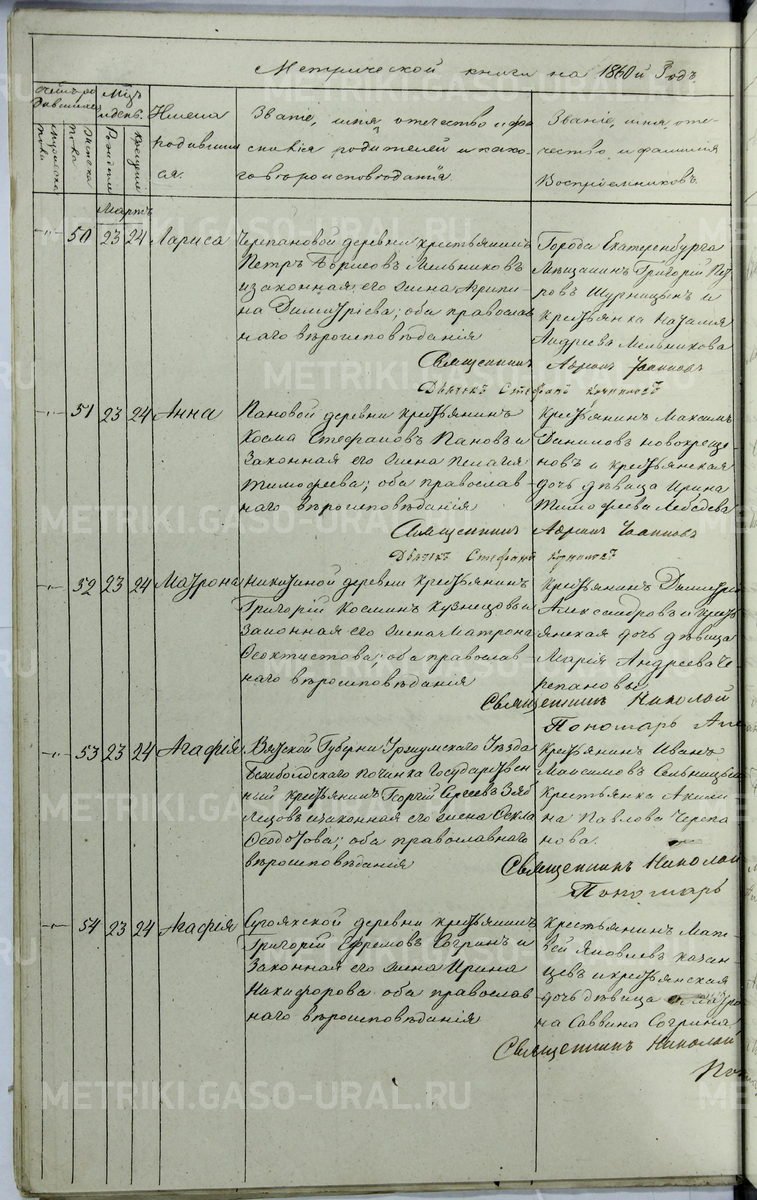 Метрической книги на 1860й Годъ.
Счетъ родившихся
Мѣсяцъ и день.
Имена родившихся.
Званіе, имя, отечество и фамилія родителей и какого вѣроисповѣданія.
Званіе, имя, отечество и фамилія Воспріемниковъ.
Мужеска пола
Женска пола
Рожденія
Крещенія
Мартъ
50 23 24 Лариса
Черепановой деревни крестьянинъ
Петръ Мельниковъ
и законная его жена Агрипи-
на Димитріева; оба православ-
наго вѣроисповѣданія
Города Екатеринбурга
Мѣщанинъ Григорій Пет-
ровъ и
Крестьянка Наталия
Андреева Мельникова
Священникъ Іоанновъ
Дьячекъ Стефанъ
51 23 24 Анна
Пановой деревни крестьянинъ
Косма Стефановъ Пановъ и
Законная его жена Пелагия
Тимофеева; оба православ-
наго вѣроисповѣданія
Крестьянинъ Максимъ
Даниловъ Новокреще-
новъ и крестьянская
дочь дѣвица Ирина
Тимофеева Лебедева
Священникъ Іоанновъ
Дьячекъ Стефанъ
52 23 24 Матрона
Никитиной деревни крестьянинъ
Григорій Космин Кузнецовъ и
Законная его жена Матрона
Феоктистова; оба православ-
наго вѣроисповѣданія
Крестьянинъ Димитрій
Александровъ и кресть-
янская дочь дѣвица
Марія Андреева Че-
репановы
Священникъ Николай
Пономарь
53 23 24 Агафія
Вятской Губерніи Уржумскаго Уѣзда
Починка Государствен-
ный крестьянинъ Георгій Сергеевъ
и законная его жена Фекла
Феодотова; оба православнаго
вѣроисповѣданія
Крестьянинъ Иванъ
Максимовъ
Крестьянка Акили-
на Павлова Черепа-
нова.
Священникъ Николай
Пономарь
54 23 24 Агафія
Сугоякской деревни крестьянинъ
Григорій Ефремовъ Согринъ и
Законная его жена Ирина
Никифорова оба православ-
наго вѣроисповѣданія
Крестьянинъ Мат-
вей Яковлевъ Казан-
цевъ и крестьянская
дочь дѣвица Матро-
на Саввина Согрина
Священникъ Николай
METRIKI.GASO-URAL.RU